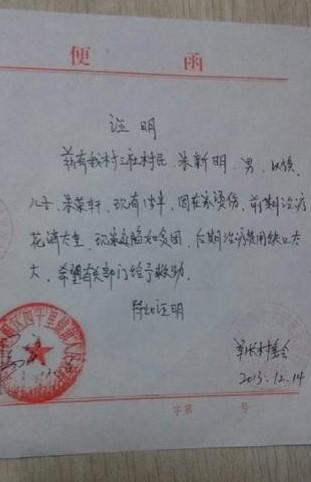 便 函
证明
兹有我村三社村民，朱新明，男，汉族，
儿子，朱荣轩，现有1岁半，因在家烫伤，前期治疗
花销大量，现家庭陷如贫困，后期治疗费用缺口太
大，希望有关部门给予救助。
特此证明
村委会
2013.12.14
字第 号